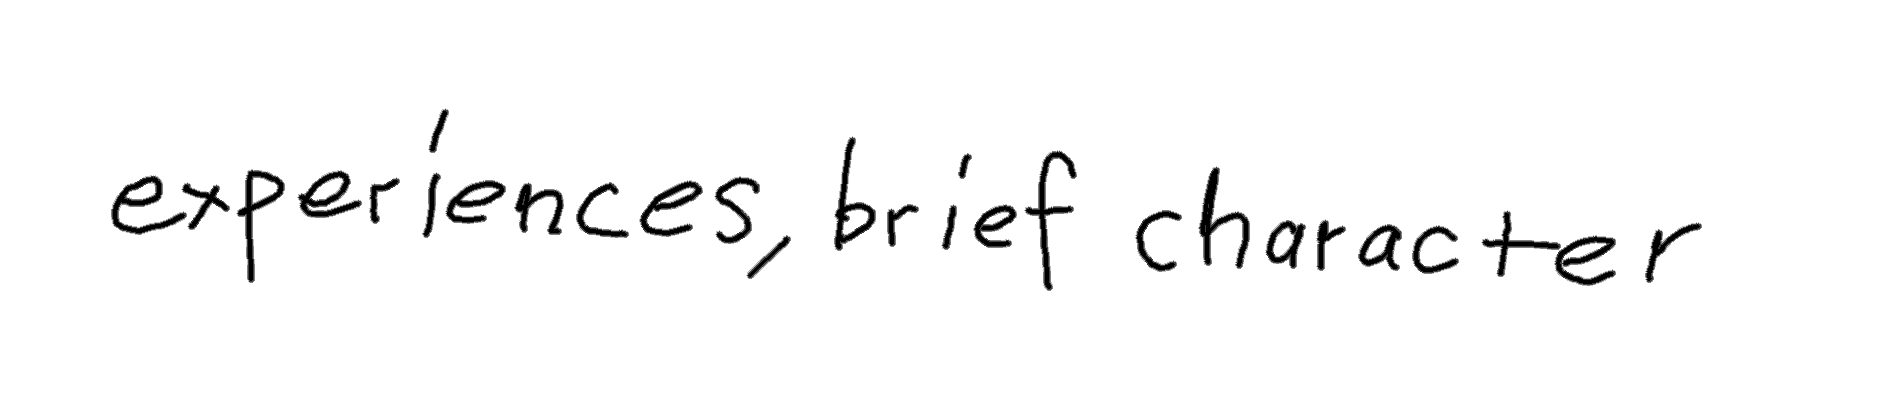 experiences, brief character